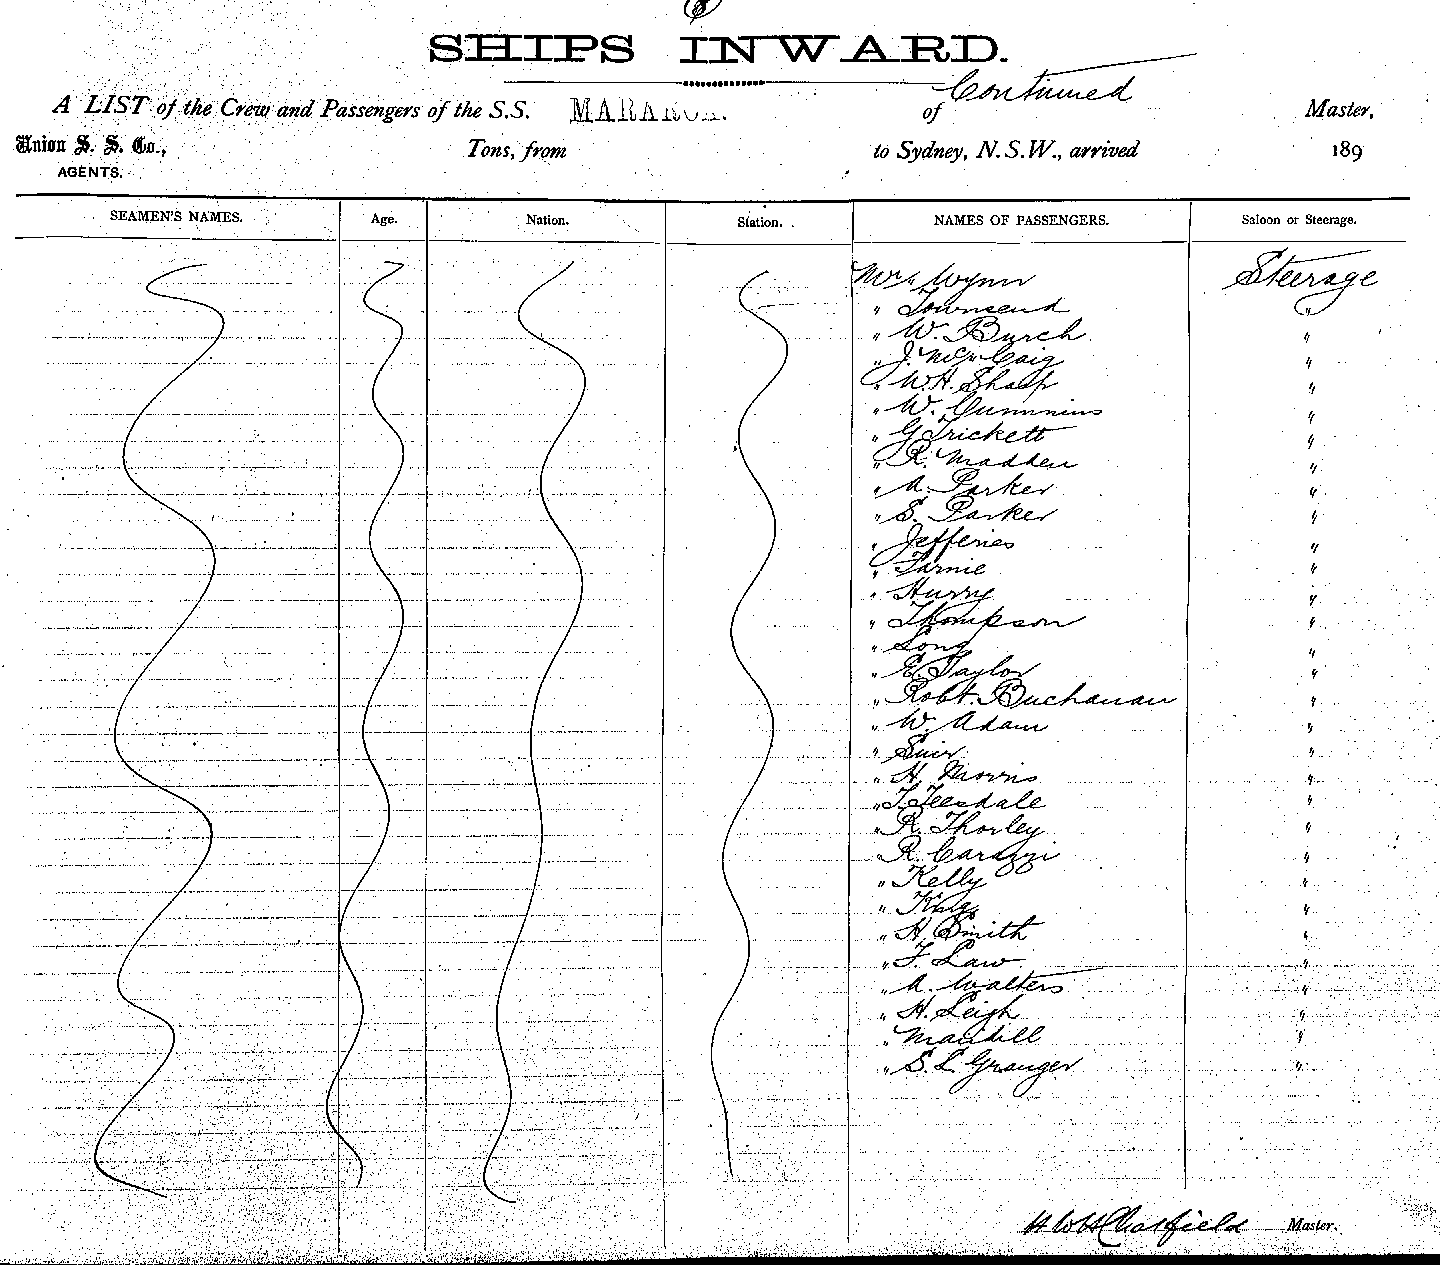 SHIPS INWARD.
Continued
A LIST of the Crew and Passengers of the S.S. MARAROA. of Master,
Union S. S. Co., Tons, from to Sydney, N.S.W., arrived 189
AGENTS.
SEAMEN'S NAMES. Age. Nation. Station. NAMES OF PASSENGERS. Saloon or Steerage.
Mr Wynn Steerage
" Townsend "
" W. Burch "
" J. McCaig "
" W.H. Sharp "
" W. Cummins "
" G Trickett "
" R. Madden "
" A. Parker "
" S. Parker "
" Jefferies "
" Farnie "
" Hurry "
" Thompson "
" Long "
" E. Taylor "
" Robt. Buchanan "
" W. Adam "
" "
" H. Morris "
" T. Teesdale "
" R. Thorley "
" R. Carazzi "
" Kelly "
" "
" H. Smith "
" F. Law "
" A. Walters "
" H. Leigh "
" "
" S. L Granger "
Chatfield Master.